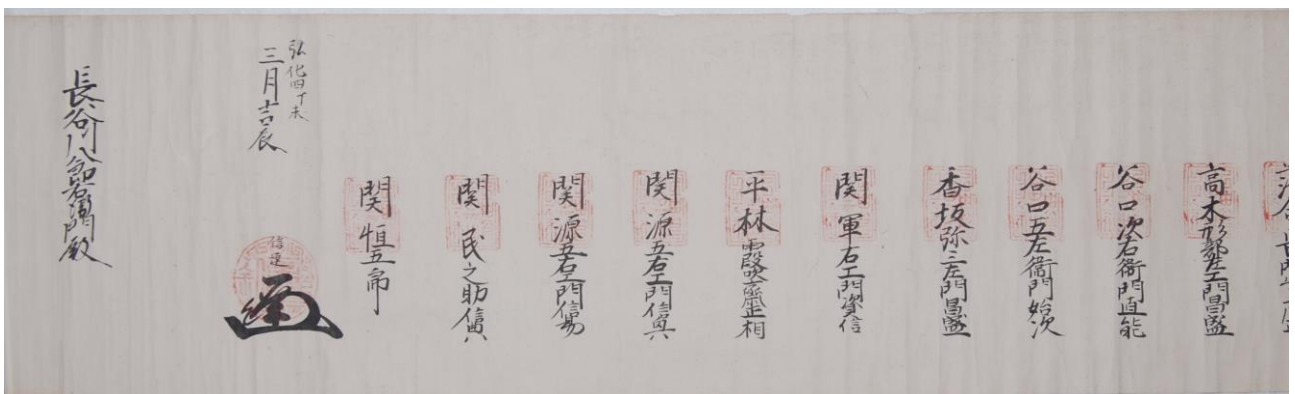 高木形部左エ門昌盛
谷口次右衛門直能
谷口五左衛門始次
香坂弥三左門昌盛
関軍右エ門資信
平林霞吹齋正相
関源五右エ門信興
関源五右エ門信易
関民之助信八
関恒五郎
信連
弘化四丁未
三月吉辰
長谷川八郎右衛門殿